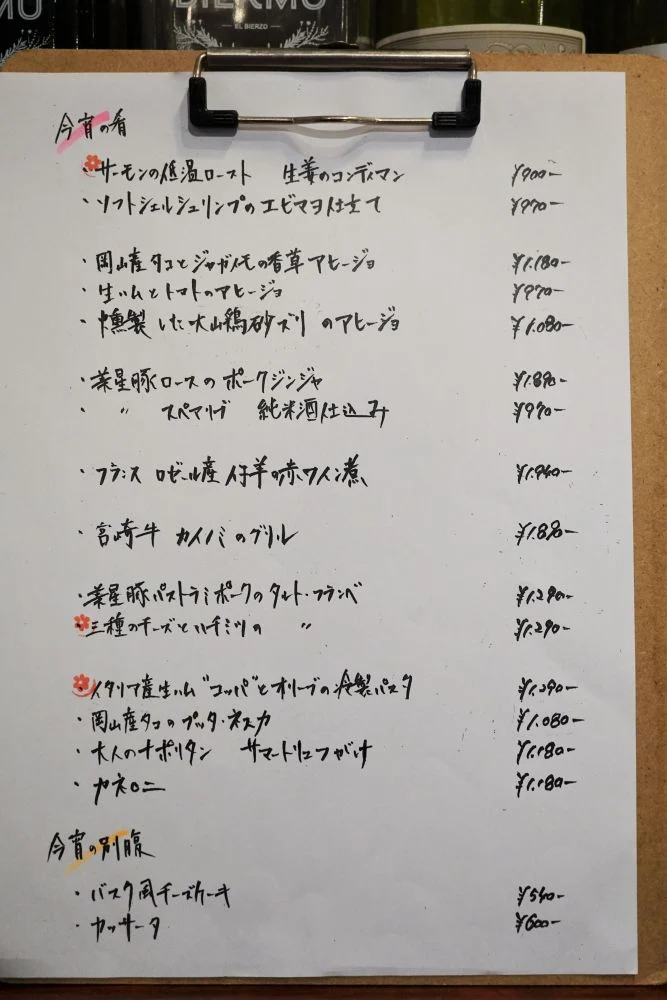 BIERMU
EL BIERZO
今宵の肴
・サーモンの低温ロースト 生姜のコンディマン ¥900-
・ソフトシェルシュリンプのエビマヨ仕立て ¥970-
・岡山産タコとジャガイモの香草アヒージョ ¥1.180-
・生ハムとトマトのアヒージョ ¥970-
・燻製した大山鶏砂ズリのアヒージョ ¥1.080-
・茶星豚ロースのポークジンジャ ¥1.890-
・ 〃 スペアリブ 純米酒仕込み ¥990-
・フランス ロゼール産 仔羊の赤ワイン煮
・宮崎牛 カイノミのグリル
・茶星豚パストラミポークのタルト・フランベ ¥1.290-
・三種のチーズとハチミツの 〃 ¥1.290-
・イタリア産生ハム"コッパ"とオリーブの冷製パスタ
・岡山産タコのプッタ・ネスカ ¥1.080-
・大人のナポリタン サマートリュフがけ ¥1.180-
・カネロニ ¥1.180-
今宵の別腹
・バスク風チーズケーキ ¥540-
・カッサータ ¥600-